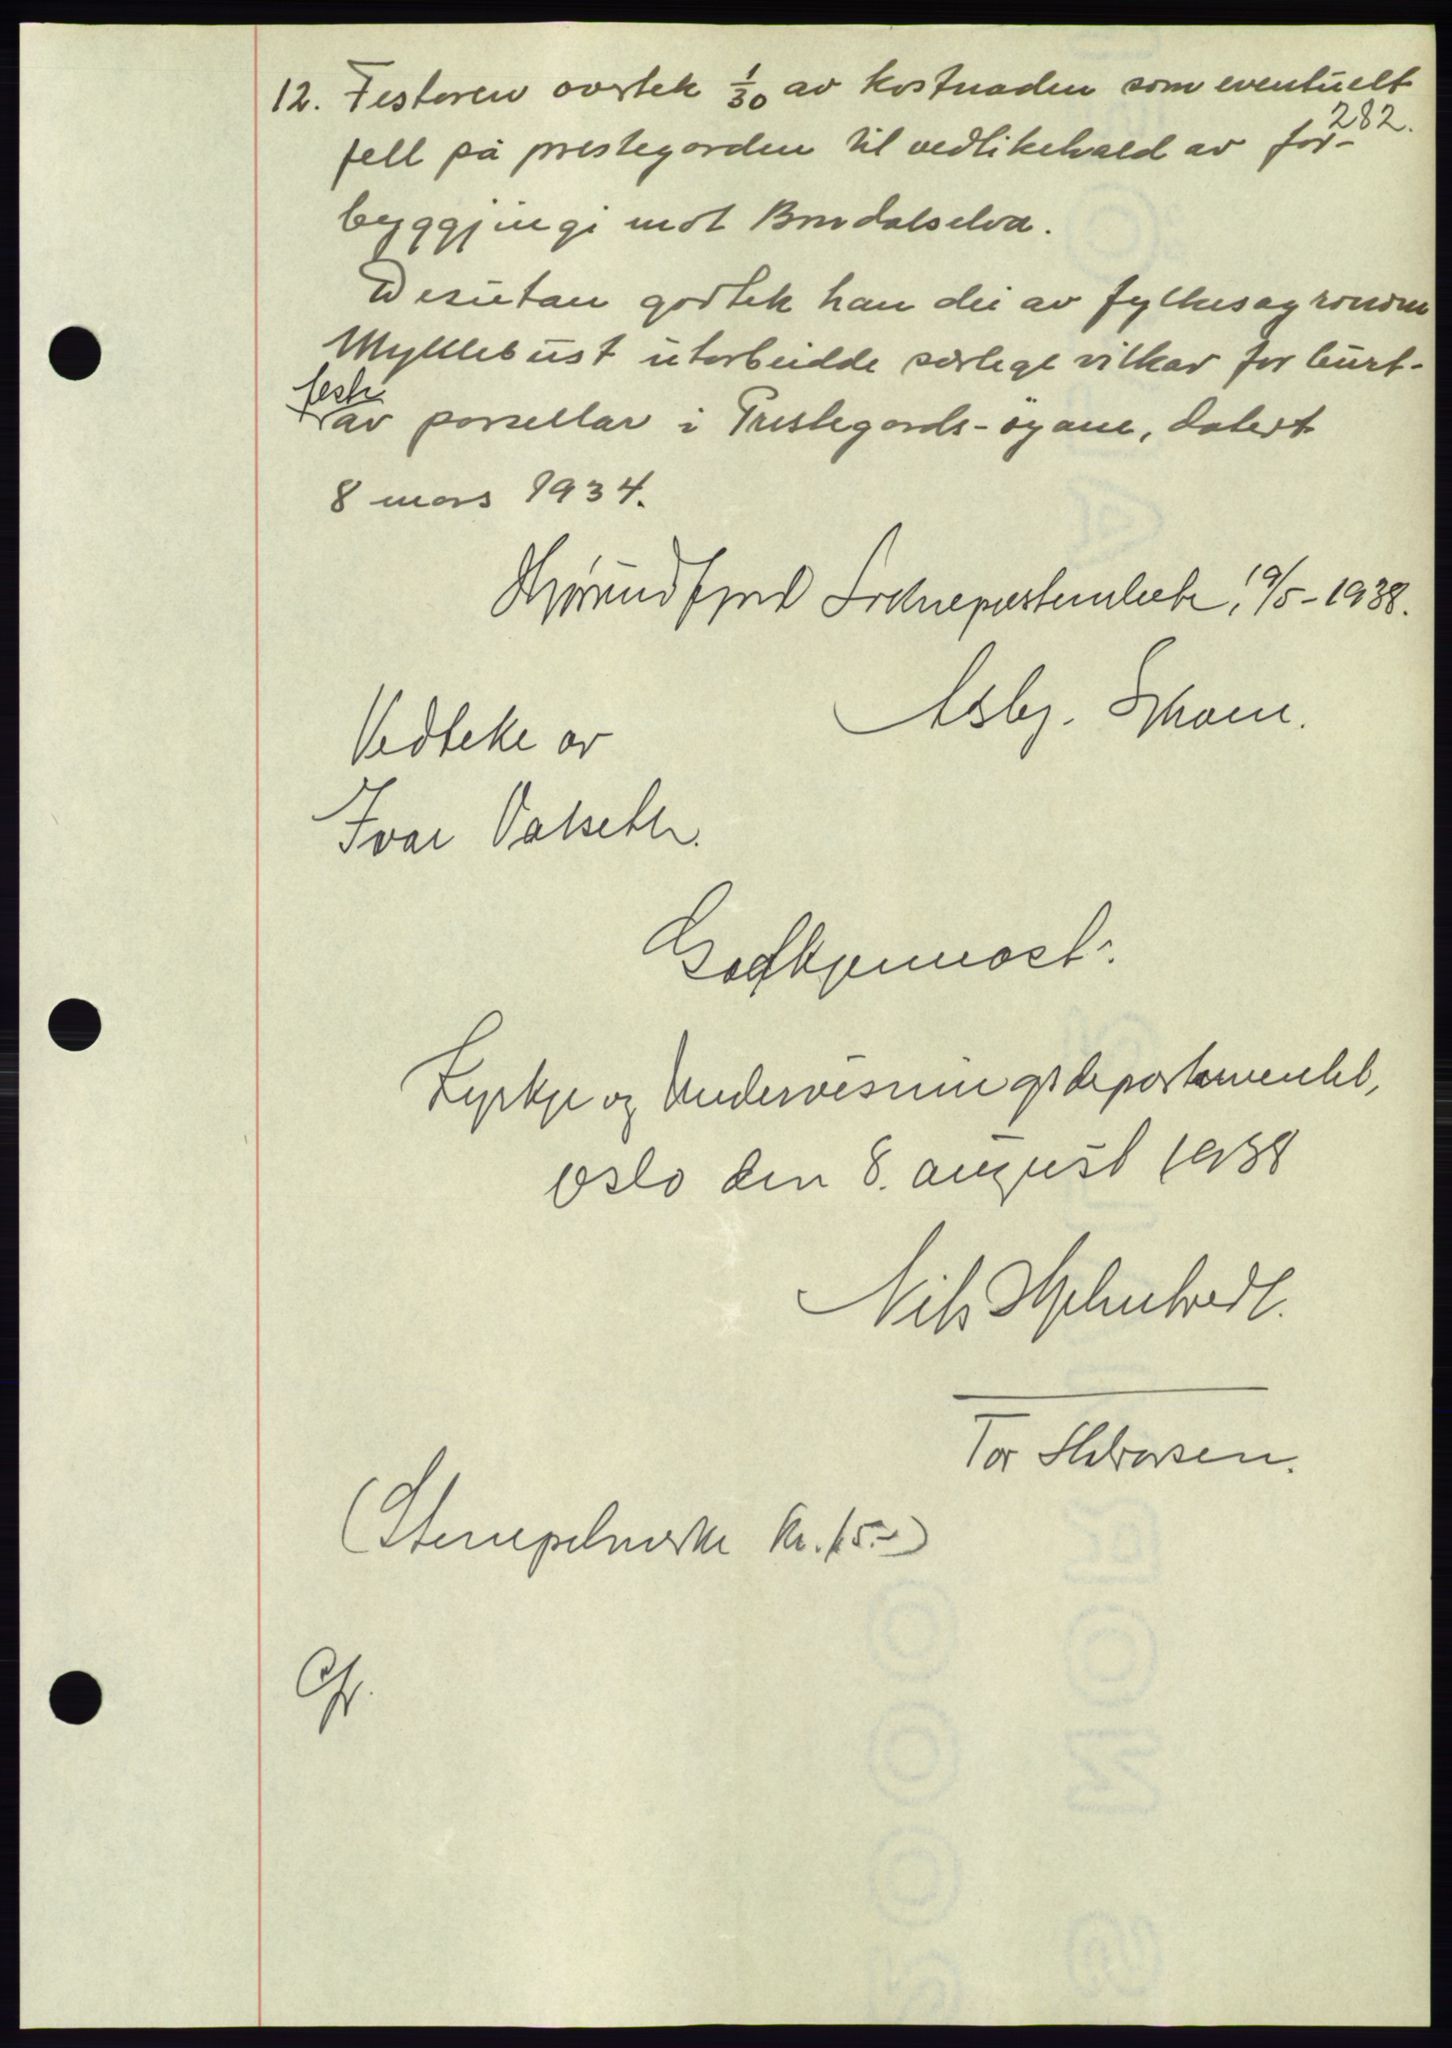 12. Festaren overtek 1/30 av kostnaden som eventuelt
282.
fell på prestegarden til vedlikehald av for-
byggjingi mot Bondalselva.
Desutan godtek han dei av fylkesagronom
Myklebust utarbeidde serlege vilkår for burt-
feste
av parsellar i Prestegards-öyane, datert
8 mars 1934.
Hjørundfjord Sokneprestembete, 19/5-1938.
Asbj.
Vedteke av
Ivar Valseth.
Godkjennast:
Kyrkje og Undervisningsdepartementet,
Oslo den 8. august 1938
Nils Hjelmtvedt.
Tor Halvorsen.
(Stempelmerke kr. 15.-)